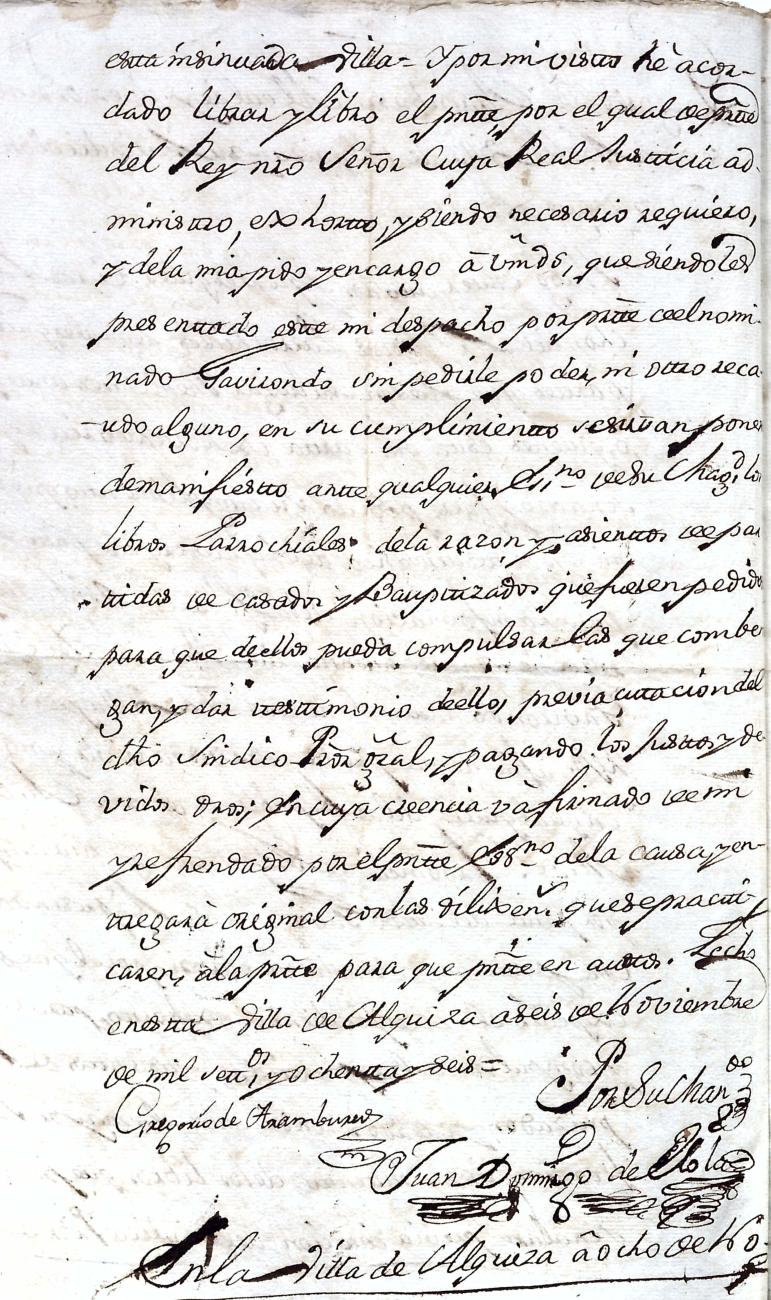 esta insinuada Villa = Y por mi visto hè acor-
dado librar y libro el preste, por el qual de parte
del Rey nrõ Señor Cuya Real Justicia ad-
ministro, exhorto, y siendo necesario requiero,
y dela mia pido y encargo à Vmds, que siendoles
presentado este mi despacho por parte del nomi-
nado Gavirondo sin pedirle poder, ni otro reca-
udo alguno, en su cumplimiento se sirvan poner
demanifiesto ante qualquier Essno de su Magd, los
libros Parrochiales dela razon y asientos de par
tidas de casados y Bauptizados que fuesen pedidos
para que deellos pueda compulsar las que combe
gan, y dar testimonio deello, previa citacion del
dhõ Sindico Pror gral, y pagando los Justos y de
vidos dros; En cuya creencia và firmado de mi
y refrendado por el preste Essno dela causa, y en-
tregarà original con las dilixens que se practi-
caren, àla parte para que preste en autos. Fecho
en esta Villa de Alquiza à seis de Noviembre
de mil settos y ochenta y seis =
Gregorio de Aramburu
Por Su Mandado
Juan Domingo de Elola
En la Villa de Alquiza à ocho de No-